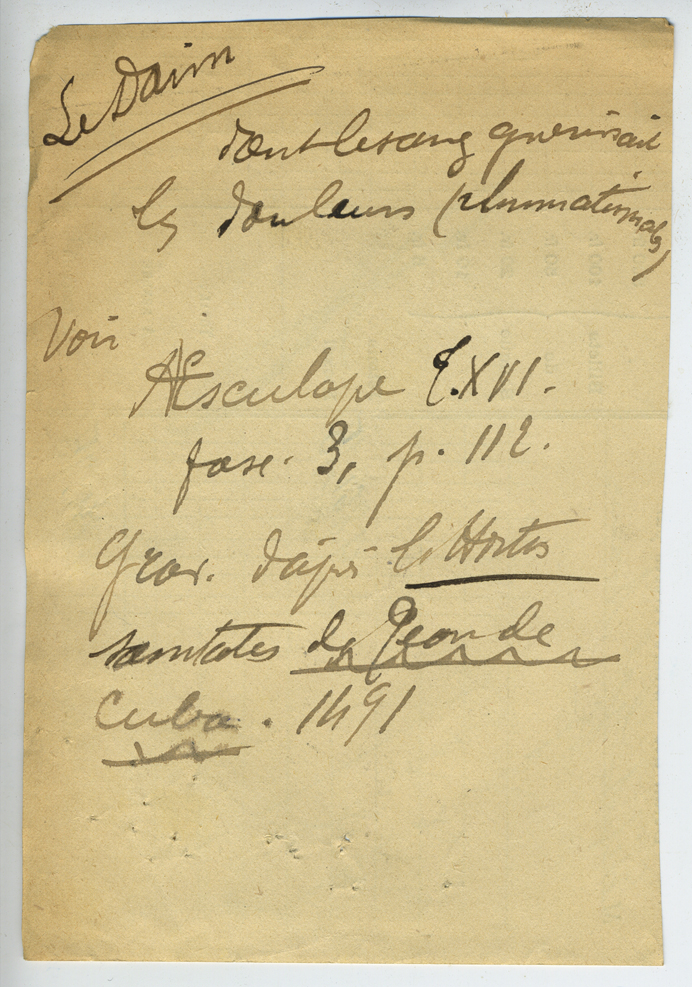 Le Daim
dont le sang guérissait
les douleurs (rhumatismales)
Voir
AEsculape T. XVI.
fasc. 3, p. 112.
Grav. d'après le Hortus
sanitates de Jean de
Cuba. 1491